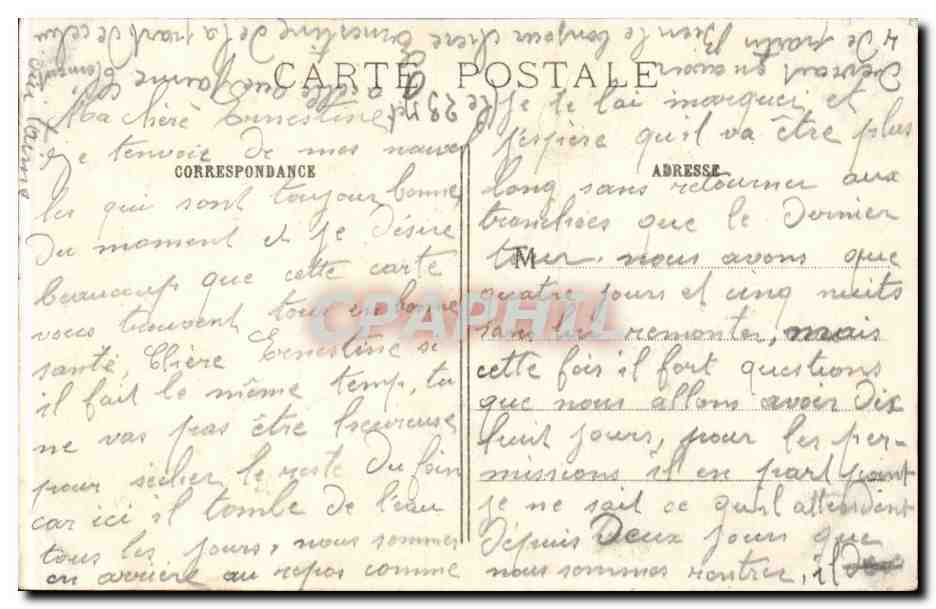 CARTE POSTALE
CORRESPONDANCE
ADRESSE
M
Ma chère Ernestine
je tenvoie de mes nouvel
les qui sont toujour bonne
du moment et je désire
beaucoup que cette carte
vous trouvent tous en bonne
santé, Chère Ernestine si
il fait le même temp, tu
ne vas pas être heureuse
pour sécher le reste du foin
car ici il tombe de l'eau
tous les jours, nous sommes
en arrière au repos comme
je te lai marquer et
jespère qu'il va être plus
long sans retourner aux
tranchées que le dernier
tour, nous avons que
quatre jours et cinq nuits
sans les remonter, mais
cette fois il fort questions
que nous allons avoir dix
huit jours, pour les per-
missions il en part point
je ne sait ce quil attendent
depuis Deux jours que
nous sommes rentrer, il
devrait en avoir
4 de partir Bien le bonjour chère Ernestine de la part de celui
qui taime
CPAPHIL